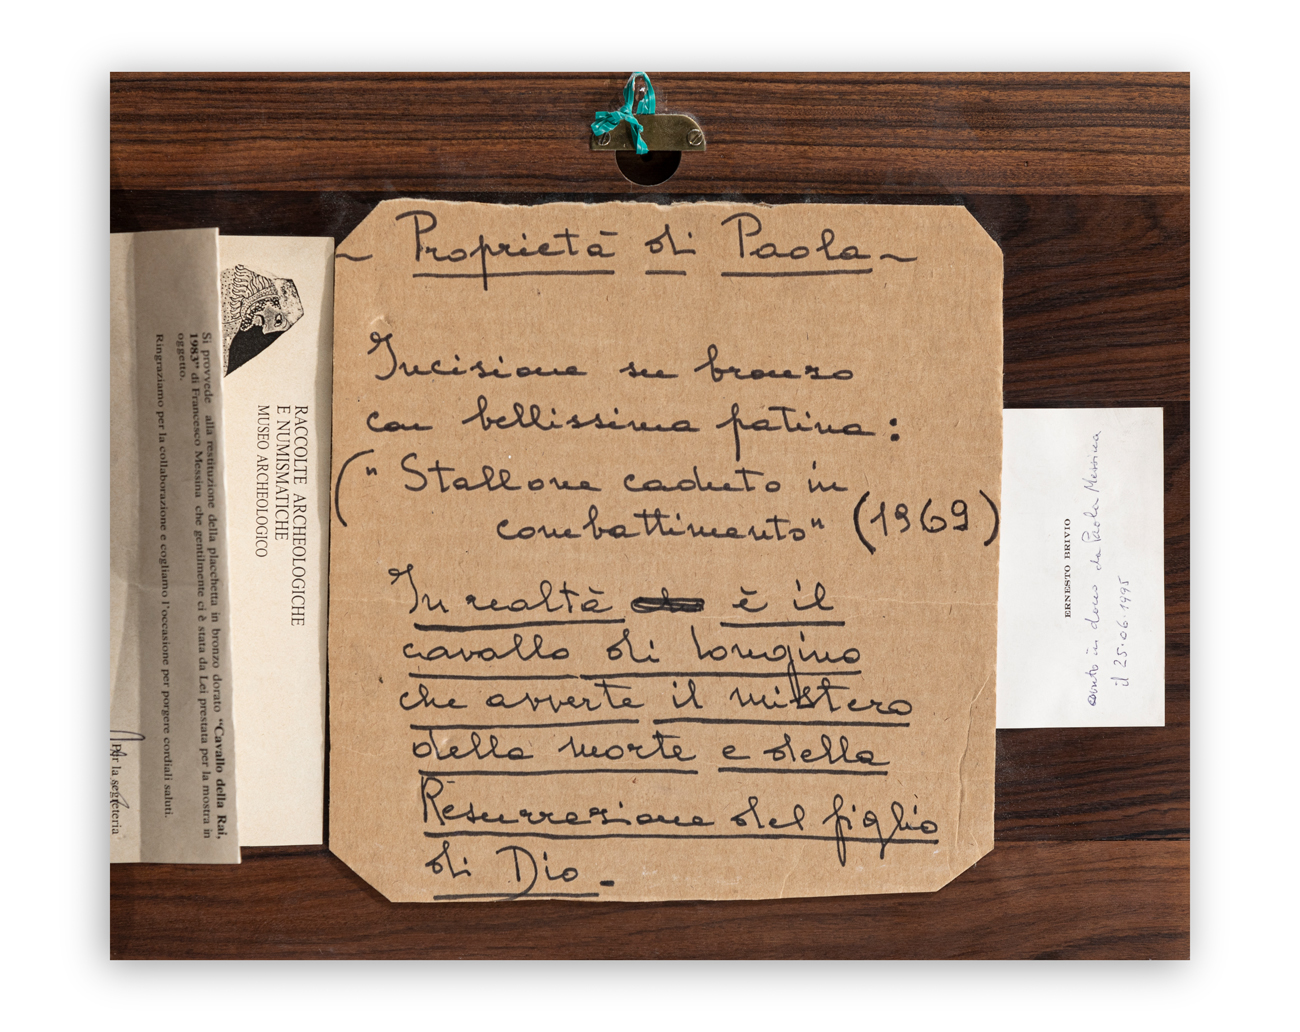 ~ Proprietà di Paola ~
Incisione su bronzo
con bellissima patina:
("Stallone caduto in
combattimento" (1969)
In realtà è il
cavallo di Longino
che avverte il mistero
della morte e della
Resurrezione del figlio
di Dio.
RACCOLTE ARCHEOLOGICHE
E NUMISMATICHE
MUSEO ARCHEOLOGICO
Si provvede alla restituzione della placchetta in bronzo dorato "Cavallo della Rai,
1983" di Francesco Messina che gentilmente ci è stata da Lei prestata per la mostra in
oggetto.
Ringraziamo per la collaborazione e cogliamo l'occasione per porgere cordiali saluti.
Per la segreteria
ERNESTO BRIVIO
avuto in dono da Paola Messina
il 25.06.1995